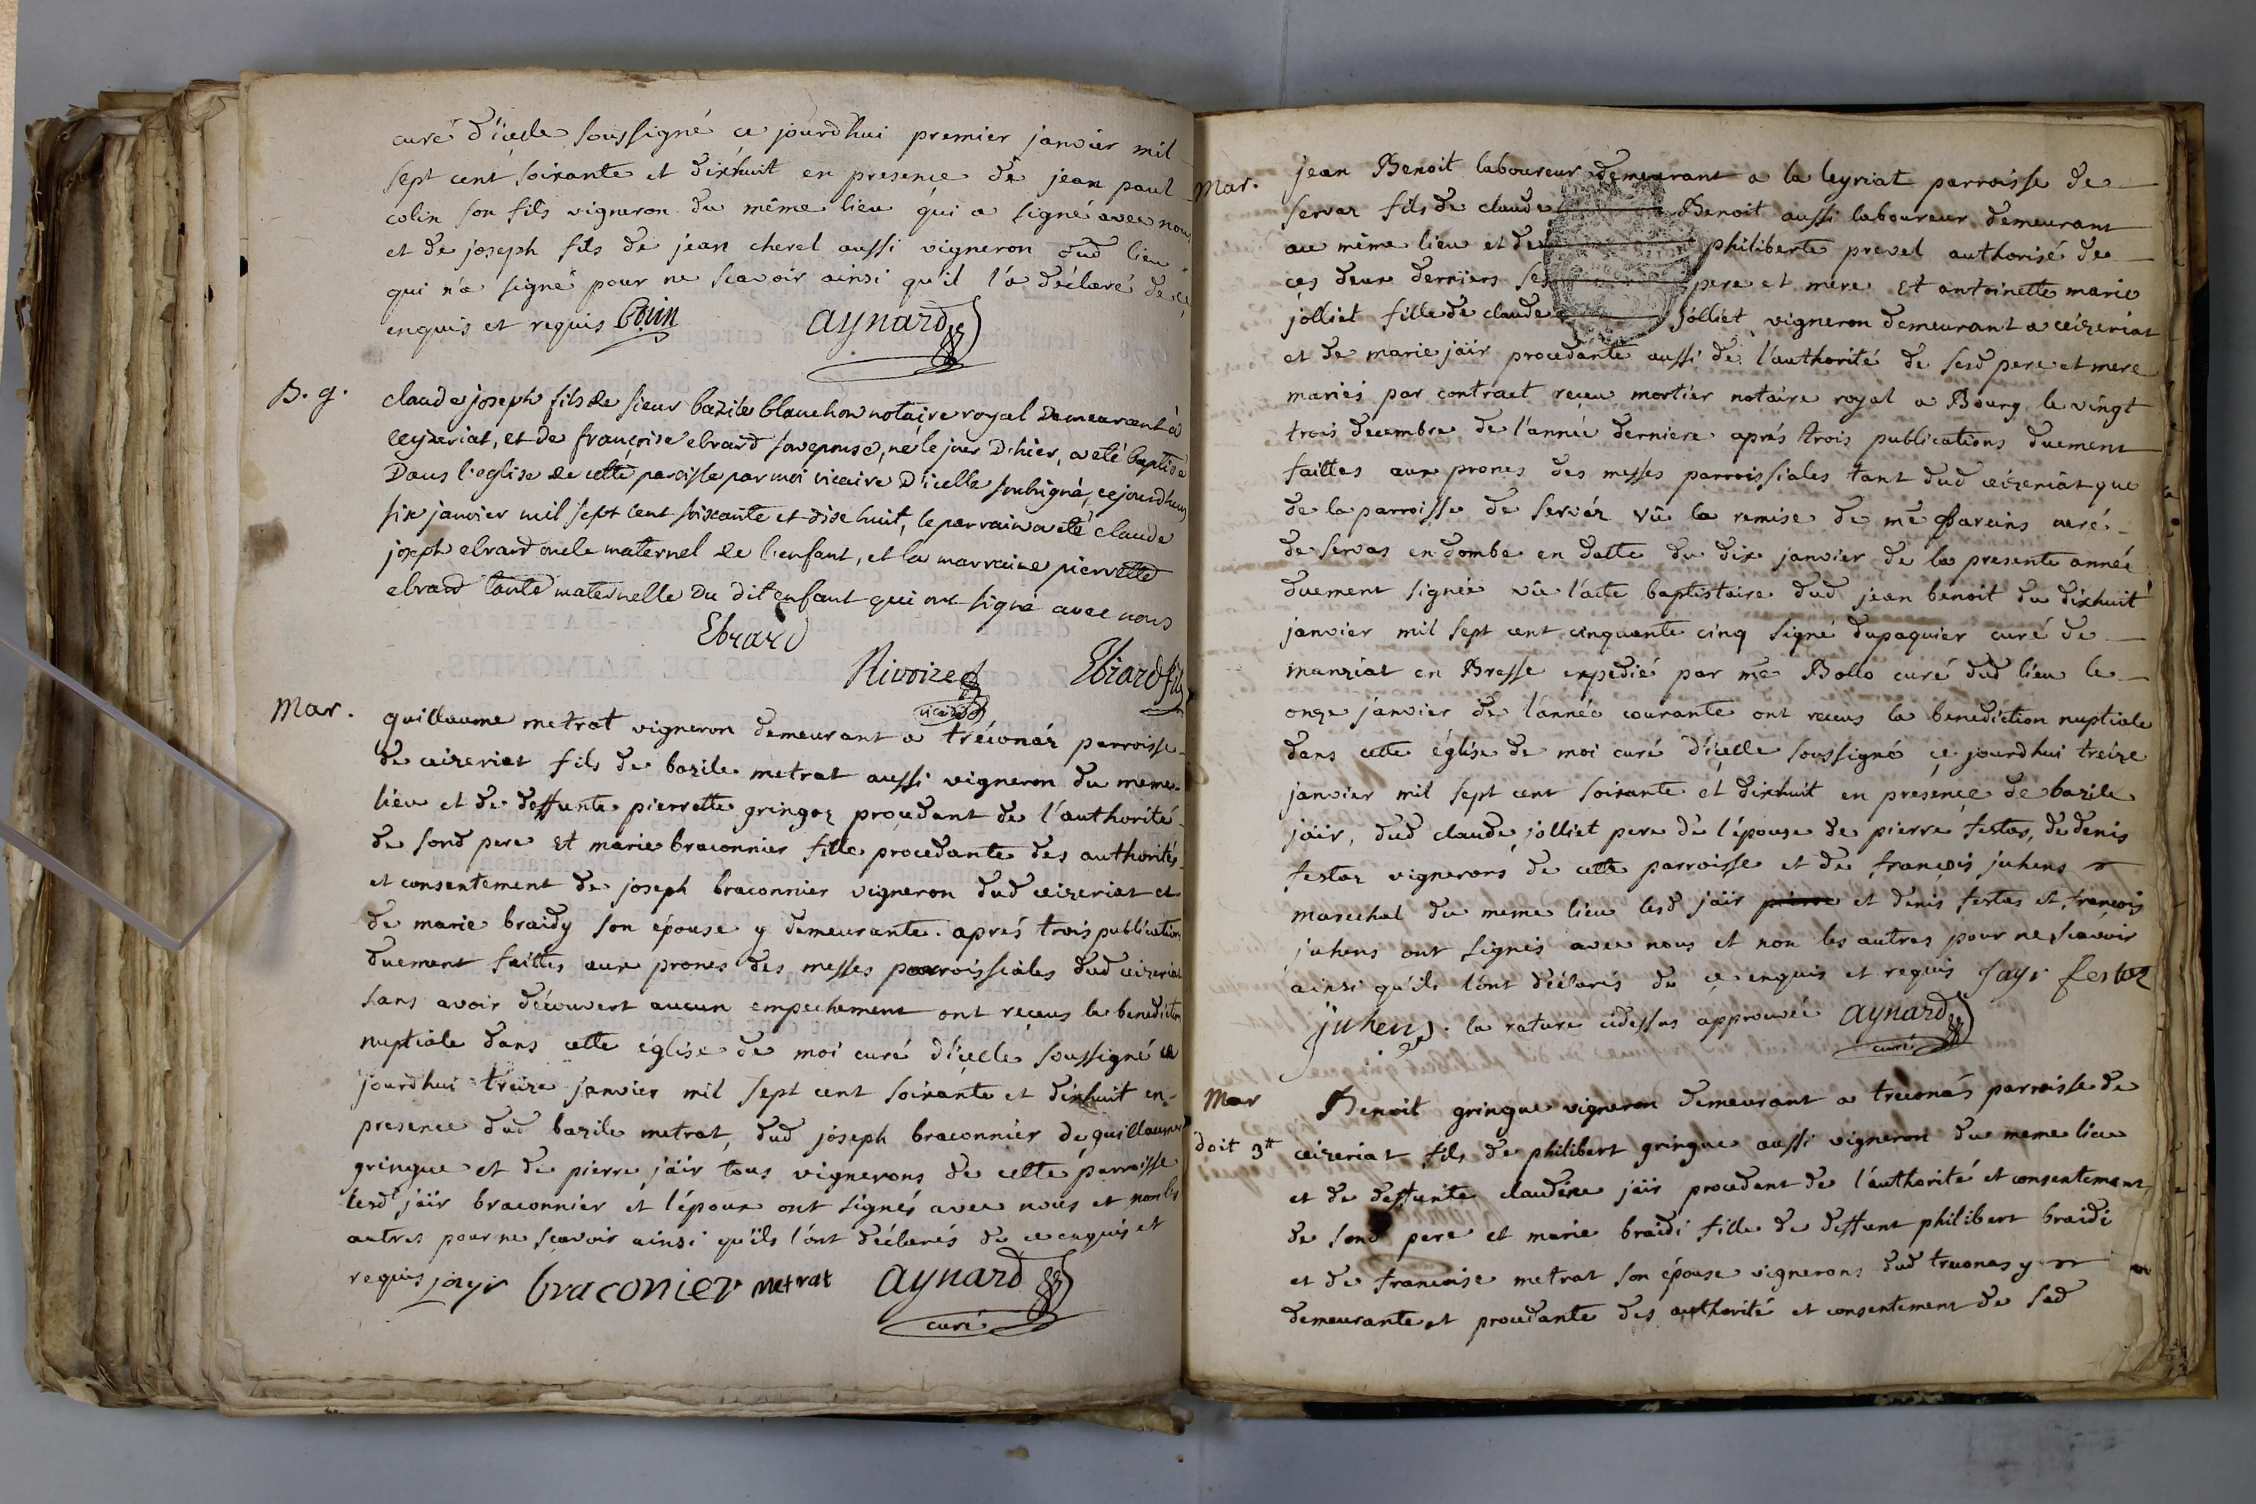 curé d'icelle soussigné ce jourd'hui premier janvier mil
sept cent soixante et dixhuit en presence de jean paul
colin son fils vigneron du même lieu qui a signé avec nous
et de joseph fils de jean cherel aussi vigneron dud lieu
qui n'a signé pour ne scavoir ainsi qu'il l'a déclaré de ce
enquis et requis Colin aynard
B. g. claude joseph fils de sieur bazile blanchon notaire royal demeurant à
ceyzeriat, et de françoise ebrard son epouse, né le jour d'hier, a eté baptisé
Dans l'eglise de cette paroisse par moi vicaire D'icelle soubsigné, cejourdhuy
six janvier mil sept cent soixante et dixe huit, le parrain a eté claude
joseph ebrard oncle maternel de l'enfant, et la marraine pierrette
ebrard tante maternelle du dit enfant qui ont signé avec nous
Ebrard
Rivoire Ebrard fils
vicaire
Mar. guillaume metrat vigneron demeurant a tréconaz parroisse
de ceizeriat fils de bazile metrat aussi vigneron du meme
lieu et de deffunte pierrette gringoz procedant de l'authorité
de sond pere et marie braconnier fille procedante des authorités
et consentement de joseph braconnier vigneron dud ceizeriat et
de marie braidy son épouse y demeurante. aprés trois publications
duement faittes aux prones des messes parroissiales dud ceizeriat
sans avoir découvert aucun empechement ont reçeus la benediction
nuptiale dans cette église de moi curé d'icelle soussigné ce
jourdhui treize janvier mil sept cent soixante et dixhuit en
presence dud bazile metrat, dud joseph braconnier de guillaume
gringue et de pierre jäir tous vignerons de cette parroisse
lesd jäir braconnier et l'époux ont signés avec nous et non les
autres pour ne scavoir ainsi qu'ils l'ont déclarés de ce enquis et
requis jayr braconier metrat aynard
curé
Mar. jean Benoit laboureur demeurant a la leyriat parroisse de
servaz fils de claude Benoit aussi laboureur demeurant
au même lieu et de philiberte prevel authorisé de
ces deux derniers ses pere et mere et antoinette marie
jolliet fille de claude jolliet vigneron demeurant a ceizeriat
et de marie jäir procedante aussi de l'authorité de sesd pere et mere
mariés par contract reçeu mortier notaire royal a Bourg le vingt
trois decembre de l'année derniere aprés trois publications duement
faittes aux prones des messes parroissiales tant dud ceizeriat que
de la parroisse de servaz vû la remise de me Pareins curé
de servas en dombe en datte du dix janvier de la presente année
duement signée vû l'acte baptistaire dud jean benoit du dixhuit
janvier mil sept cent cinquante cinq signé dupaquier curé de
manziat en Bresse expedié par me Bollo curé dud lieu le
onze janvier de l'année courante ont receus la benediction nuptiale
dans cette église de moi curé d'icelle soussigné ce jourdhui treize
janvier mil sept cent soixante et dixhuit en présence de bazile
jäir, dud claude jolliet pere de l'épouse de pierre festas, de denis
festaz vignerons de cette parroisse et de françois juhens
marechal du meme lieu lesd jäir pierre et denis festas et françois
juhens ont signés avec nous et non les autres pour ne scavoir
ainsi qu'ils l'ont déclarés de ce enquis et requis Jayr festaz
juhens. la rature cidessus approuvée aynard
curé
Mar Benoit gringue vigneron demeurant a treconas parroisse de
doit 3tt ceizeriat fils de philibert gringue aussi vigneron du meme lieu
et de deffunte claudine jäir procedent de l'authorité et consentement
de sond pere et marie braidi fille de deffunt philibert braidi
et de francoise metrat son épouse vignerons dud treconas y
demeurante et procedante des authorité et consentement de sad